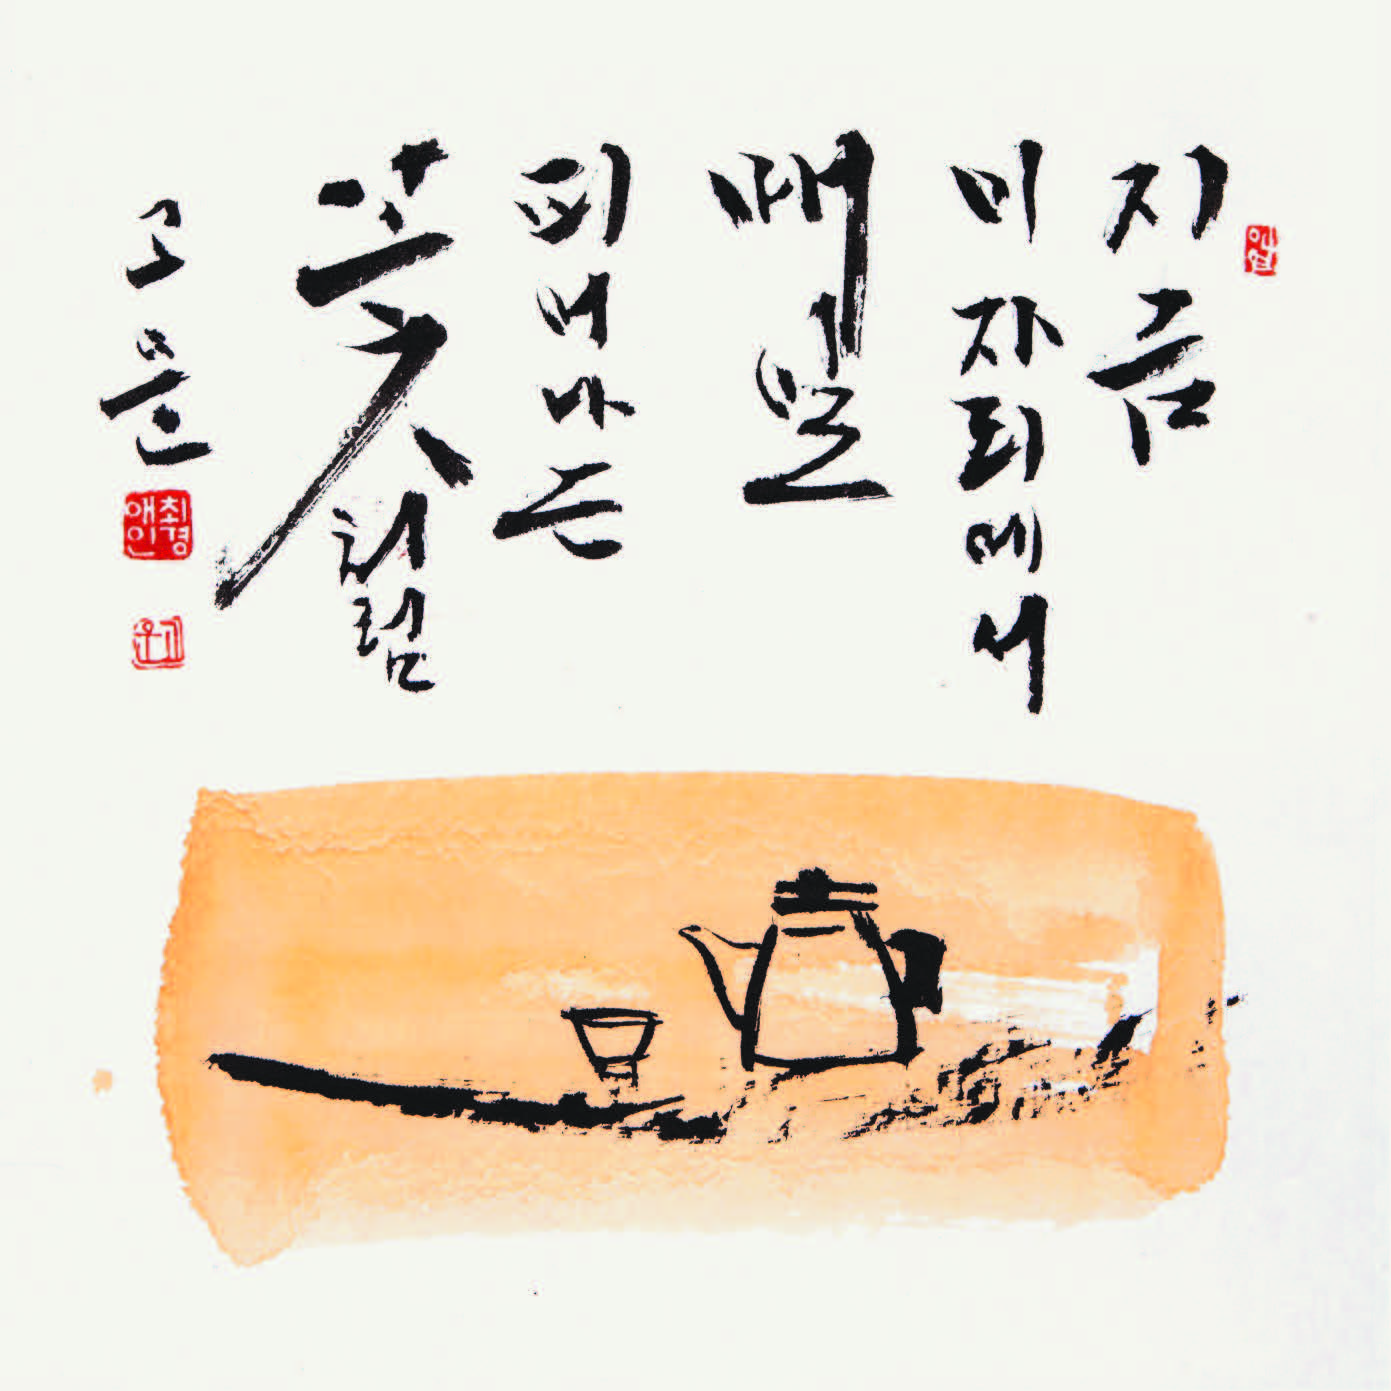 지금
이 자리에서
매일
피어나는
꽃처럼
고운
최경애인
고운